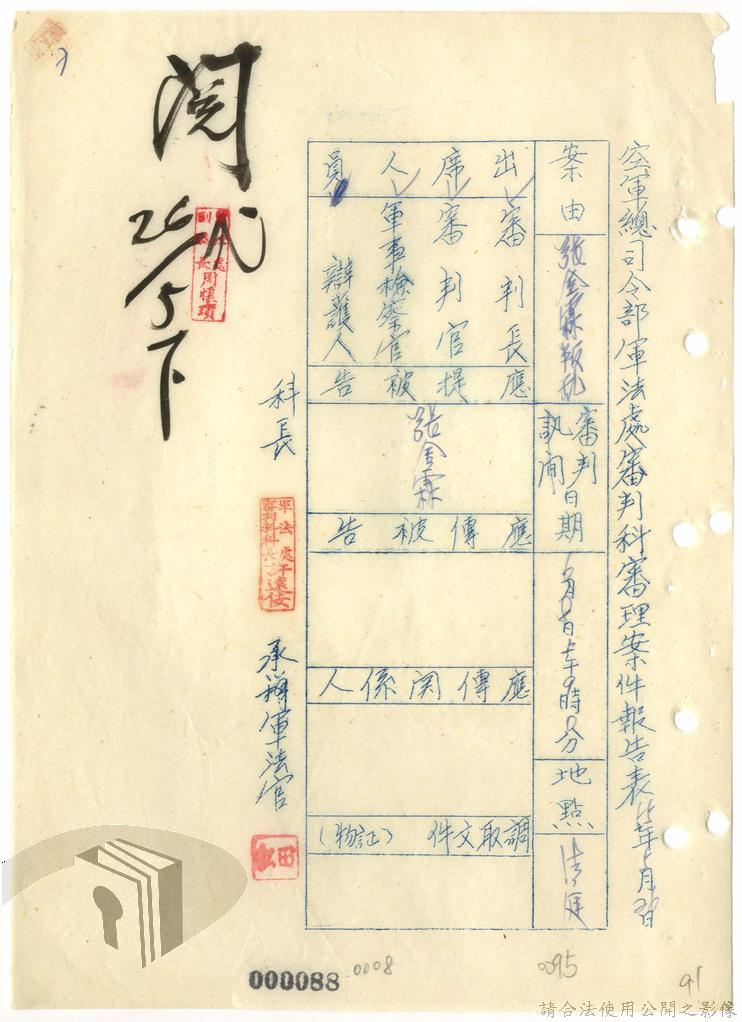 空軍總司令部軍法處審判科審理案件報告表
年5月 日
案由
張金霖叛乱
審判
訊問
日期
月 日上午9時0分
地點
法庭
出席人員
審判長
審判官
軍事檢察官
辯護人
應提被告
張金霖
應傳被告
應傳関係人
調取文件(証物)
科長
軍法處
審判科科長
承辦軍法官
田
閱
代
26/5下
副處長周懷璜
000088
0008
0095
91
請合法使用公開之影像